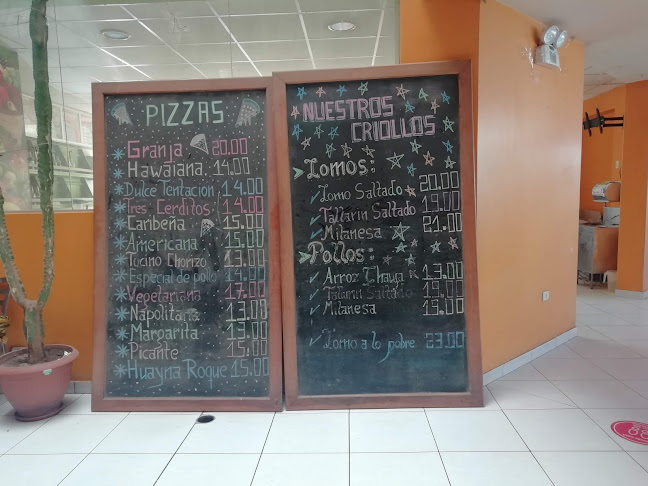 PIZZAS
Granja 20.00
Hawaiana 14.00
Dulce Tentacion 14.00
Tres Cerditos 14.00
Caribeña 15.00
Americana 15.00
Tocino Chorizo 13.00
Especial de pollo 14.00
Vegetariana 17.00
Napolitana 13.00
Margarita 13.00
Picante 15.00
Huayna Roque 15.00
NUESTROS
CRIOLLOS
Lomos:
Lomo Saltado 20.00
Tallarin Saltado 19.00
Milanesa 21.00
Pollos:
Arroz Chaufa 13.00
Tallarin Saltado 19.00
Milanesa 19.00
Lomo a lo pobre 23.00